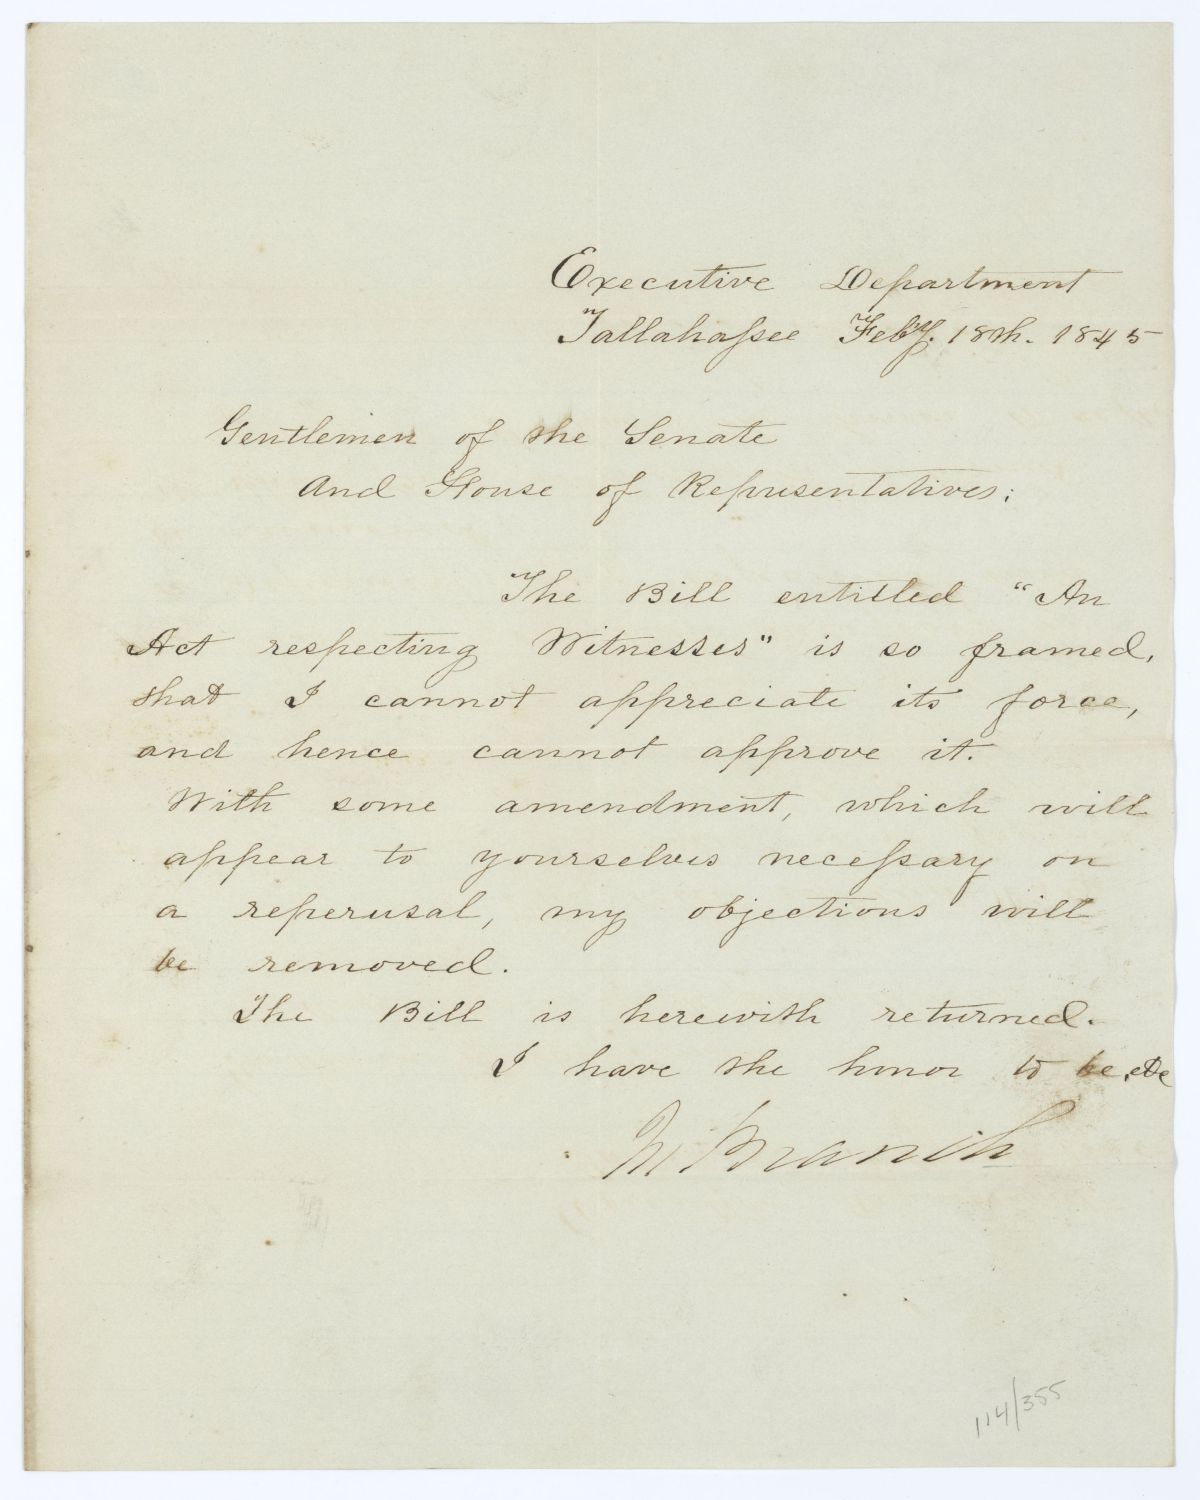 Executive Department
Tallahassee Feby. 18th. 1845
Gentlemen of the Senate
And House of Representatives:
The Bill entitled "An
Act respecting Witnesses" is so framed,
that I cannot appreciate its force,
and hence cannot approve it.
With some amendment, which will
appear to yourselves necessary on
a reperusal, my objections will
be removed.
The Bill is herewith returned.
I have the honor to be, etc
Branch
114/355